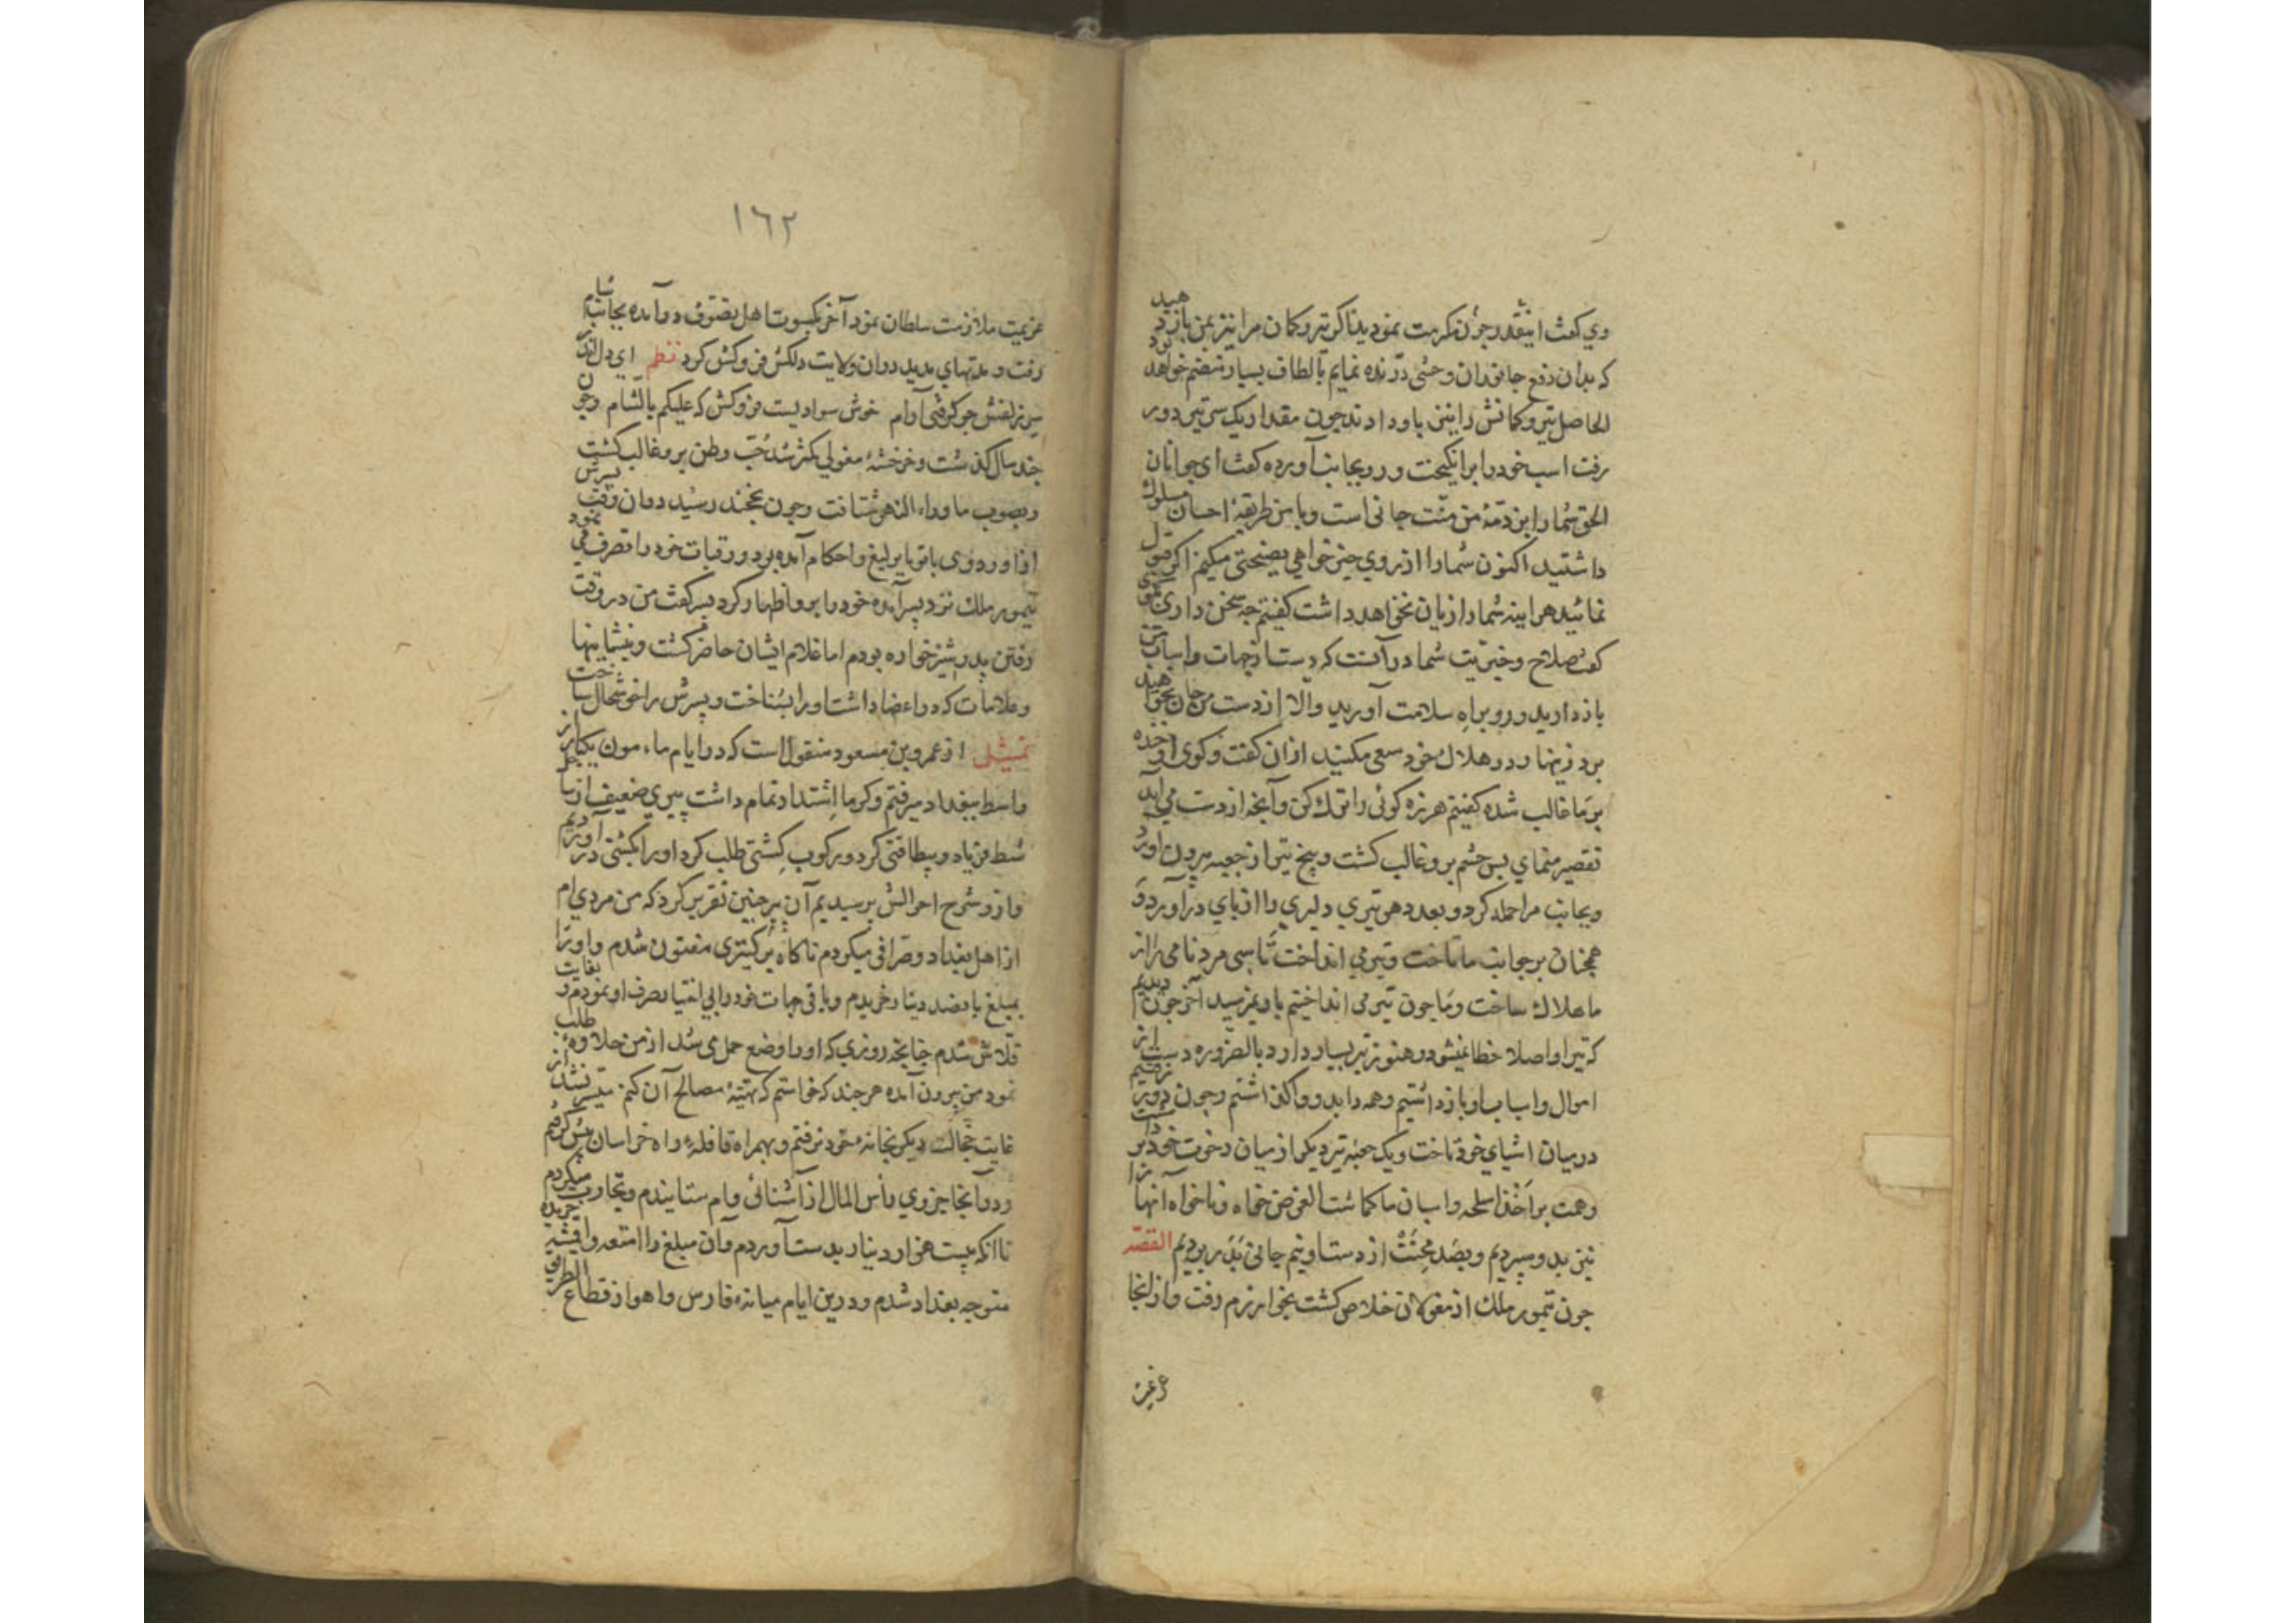 وي كفت اينقدر چون مكرمت نموديد تا كر تير و كمان مرا نيز بمن باز دهيد
كه بدان دفع جانوران وحشى درنده نمايم بالطاف بسيار منضم خواهد بود
الحاصل تير و كمانش را نيز باو دادند چون مقدار يك سر تير دور
رفت اسب خود را برانكيخت و رو بجانب آورده كفت اى جوانان
الحق شما را بر ذمّۀ من منّت جانى است و با من طريقۀ احسان سلوك
داشتيد اكنون شما را از روي خير خواهي نصيحتى ميكنم اكر قبول
نمائيد هر اينه شما را زيان نخواهد داشت كفتيم چه سخن داري بكوى
كفت صلاح و خيريّت شما در آنست كه دست از جهات و اسباب من
باز داريد و رو براه سلامت آوريد والا از دست من جان نخواهيد
برد زينهار در هلاك خود سعى مكنيد از ان كفت و كوى او خنده
بر ما غالب شده كفتيم هرزه كوئى را ترك كن و آنچه از دست مى آيد
تقصير منماي پس خشم برو غالب كشت و پنج تير از جعبه بيرون آورد
و بجانب ما حمله كرد و بعدد هر تيرى دليرى را از پاى در آورد و
همچنان بر جوانب ما تاخت و تير مى انداخت تا سى مرد نامى را از
ما هلاك ساخت و ما چون تير مى انداختيم باو نميرسيد آخر چون ديديم
كه تير او اصلا خطا نميشود و هنوز تير بسيار دارد بالضروره دست از
اموال و اسباب او باز داشتيم و همه را بدو واكذاشتيم و چون دورتر رفتيم
در ميان اشياي خود تاخت و يك جعبه تير ديكر از ميان رخوت خود برداشت
و همت بر اخذ اسلحه و اسبان ما كماشت الغرض خواه و ناخواه آنها را
نيز بدو سپرديم و بصد محنت از دست او نيم جانى بدر برديم القصّه
چون تيمور ملك از مغولان خلاص كشت بخوارزم رفت و از انجا
عزيمت
١٦٢
عزيمت ملازمت سلطان نمود آخر بكسوت اهل تصوّف در آمده بجانب شام
رفت و مدتهاي مديد در ان ولايت دلكش فروكش كرد نظم اي دل اندر
سر زلفش چو كرفتى آرام خوش سواديست فروكش كه عليكم بالشام و چون
چند سال كذشت و خرخشۀ مغولى كمتر شد حبّ وطن برو غالب كشت
و بصوب ماوراء النهر شتافت و چون بخجند رسيد در ان وقت پسرش
از اوردوى باتو با يرليغ و احكام آمده بود و رقبات خود را تصرف مى نمود
تيمور ملك نزد پسر آمده خود را برو اظهار كرد پسر كفت من در وقت
رفتن پدر شير خواره بودم اما غلام ايشان حاضر كشت و بنشانيها
و علامات كه در اعضا داشت او را بشناخت و پسرش را خوشحال ساخت
تمثيل از عمرو بن مسعود منقول است كه در ايام مامون يكبار از
واسط ببغداد ميرفتم و كرما اشتداد تمام داشت پيرى ضعيف از ساحل
شط فرياد و بيطاقتى كرد و ركوب كشتى طلب كرد او را بكشتى در آورديم
و از و شرح احوالش پرسيديم آن پير چنين تقرير كرد كه من مردي ام
از اهل بغداد و صرافى ميكردم ناكاه بر كنيزى مفتون شدم و او را
بمبلغ پانصد دينار خريدم و باقى جهات خود را بى اختيار صرف او نمودم و بغايت
قلاش شدم چنانچه روزي كه او را وضع حمل مى شد از من حلاوه طلب
نمود من بيرون آمده هر چند كه خواستم كه تهيّۀ مصالح آن كنم ميسر نشد از
غايت خجالت ديكر بخانه خود نرفتم و بهمراه قافله راه خراسان پيش كرفتم
و در آنجا جزوي راس المال از آشنائى وام ستانيدم و تجارت ميكردم
تا انكه بيست هزار دينار بدست آوردم و آن مبلغ را امتعه و اقمشه خريده
متوجه بغداد شدم و در ين ايام ميانه فارس و اهواز قطاع الطريق